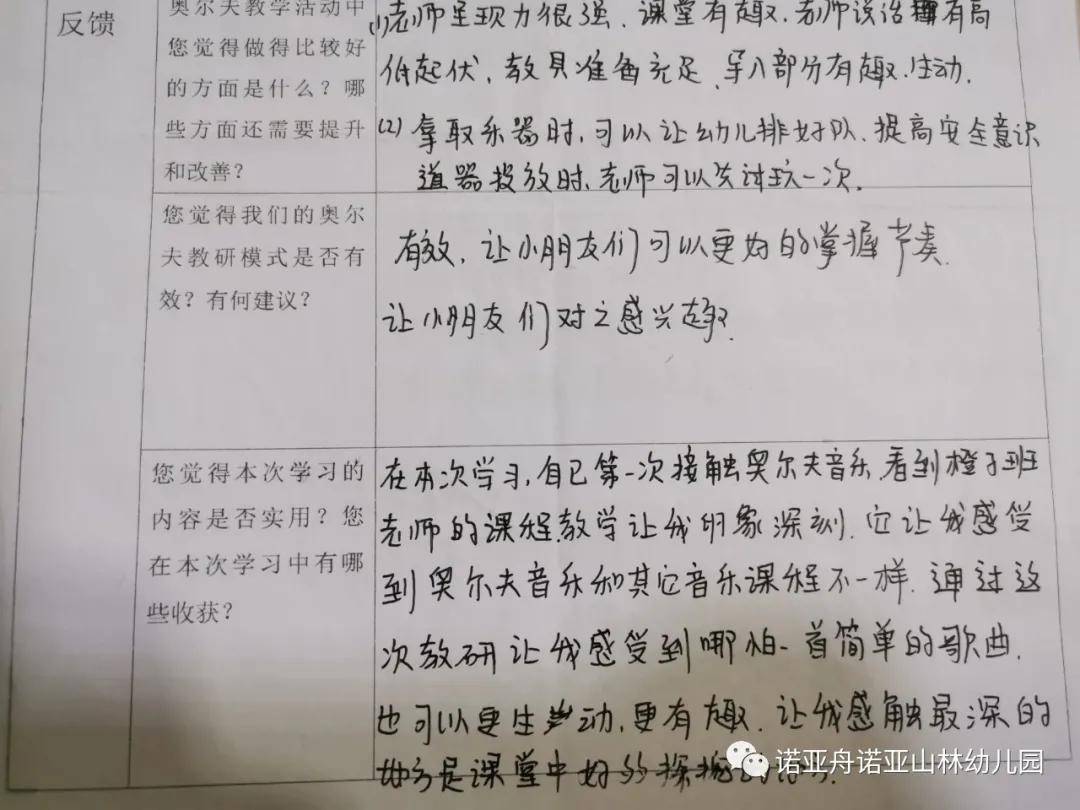 反馈
奥尔夫教学活动中
您觉得做得比较好
的方面是什么？哪
些方面还需要提升
和改善？
(1)老师呈现力很强、课堂有趣、老师说话有高
低起伏、教具准备充足、导入部分有趣、生动.
(2) 拿取乐器时,可以让幼儿排好队、提高安全意识
道器投放时,老师可以先讨玩一次.
您觉得我们的奥尔
夫教研模式是否有
效？有何建议？
有效, 让小朋友们可以更好的掌握节奏.
让小朋友们对之感兴趣.
您觉得本次学习的
内容是否实用？您
在本次学习中有哪
些收获？
在本次学习,自己第一次接触奥尔夫音乐.看到橙子班
老师的课程教学让我印象深刻.它让我感受
到奥尔夫音乐和其它音乐课程不一样. 通过这
次教研让我感受到哪怕一首简单的歌曲.
也可以更生动,更有趣. 让我感触最深的
地方是课堂中好的
诺亚舟诺亚山林幼儿园